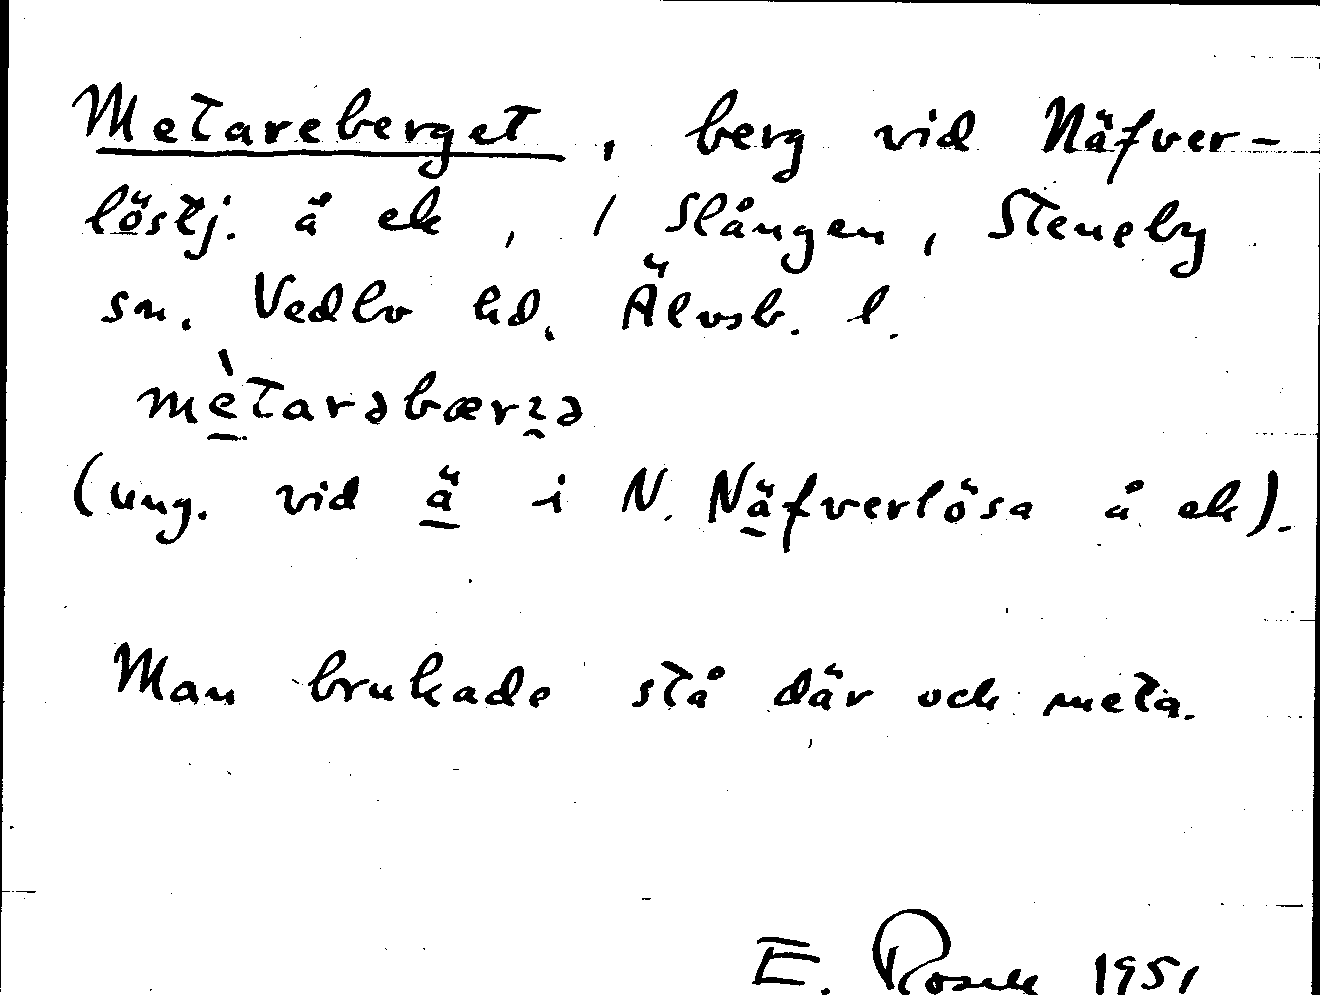 Metareberget, berg vid Näfver-
löstj. å ek, / Slången, Steneby
sn. Vedbo hd. Älvsb. l.
mètarəbærʒə
(ung. vid ä i N. Näfverlösa å ek).
Man brukade stå där och meta.
E. Rosell 1951